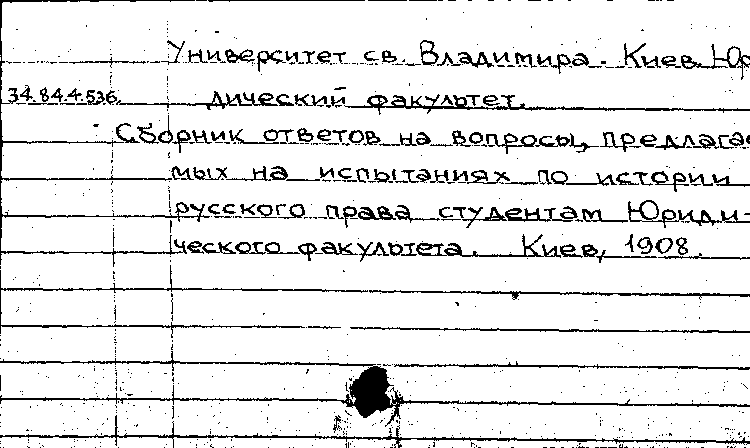 Университет св. Владимира. Киев. Юр
дический факультет.
34.84.4.536.
Сборник ответов на вопросы, предлагае
мых на испытаниях по истории
русского права студентам Юриди-
ческого факультета. Киев, 1908.